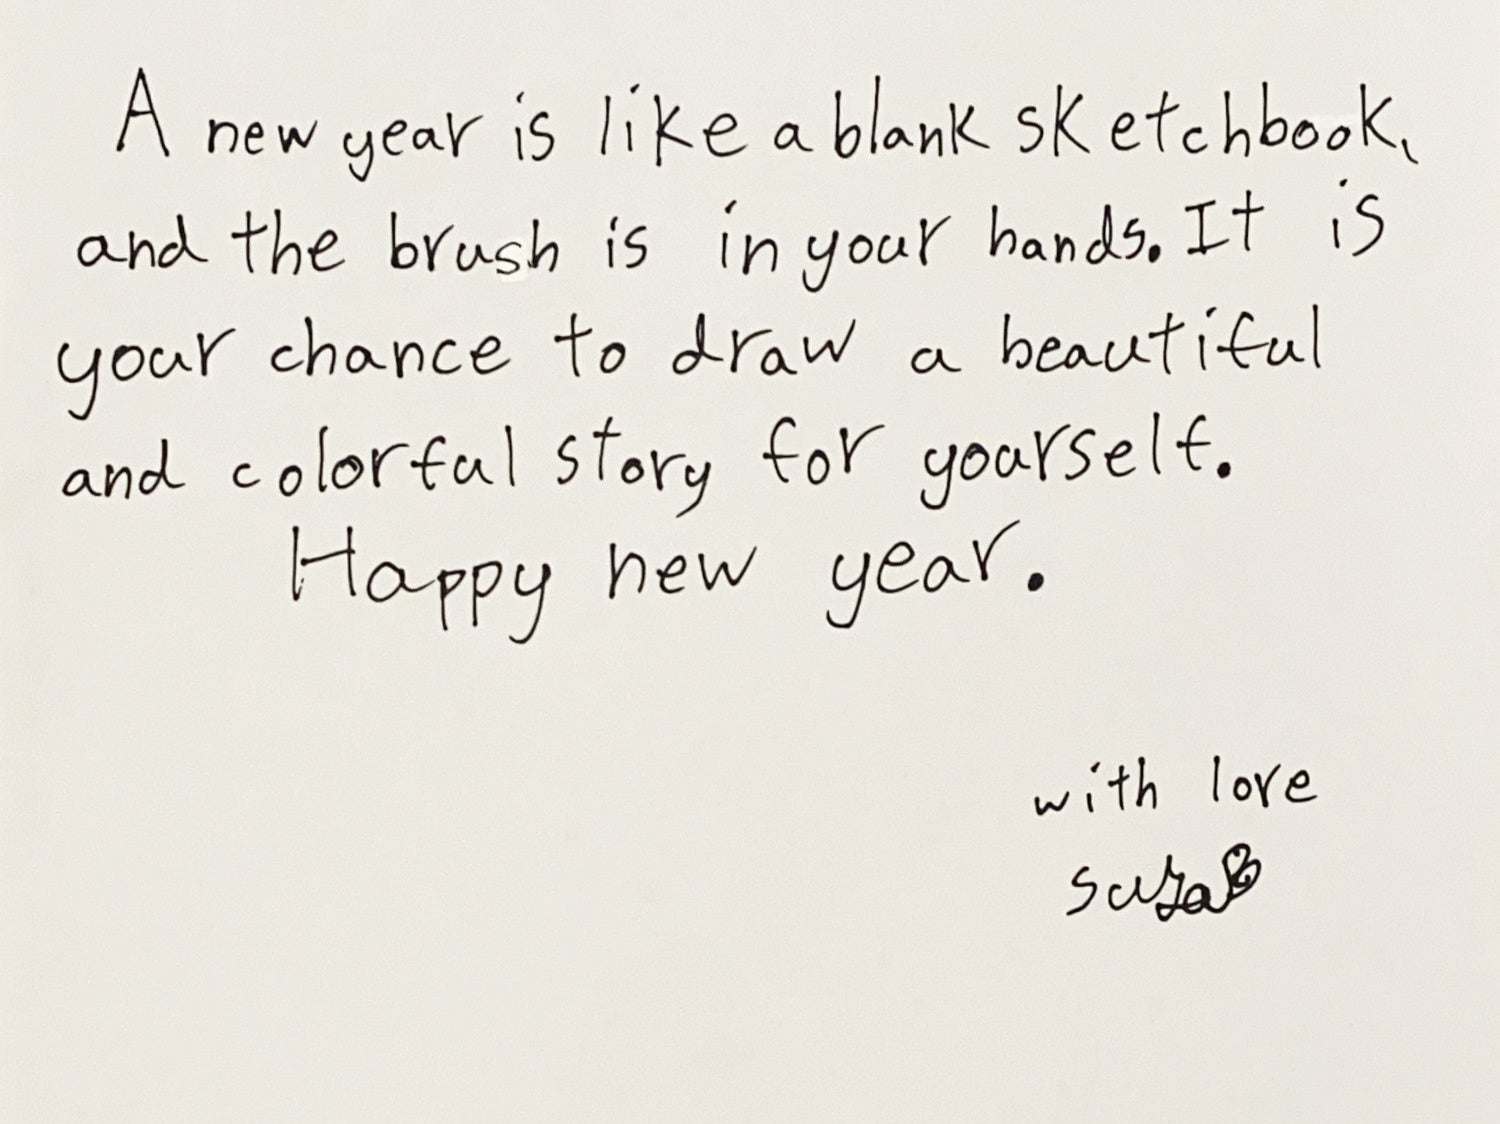 A new year is like a blank sketchbook,
and the brush is in your hands. It is
your chance to draw a beautiful
and colorful story for yourself.
Happy new year.
with love